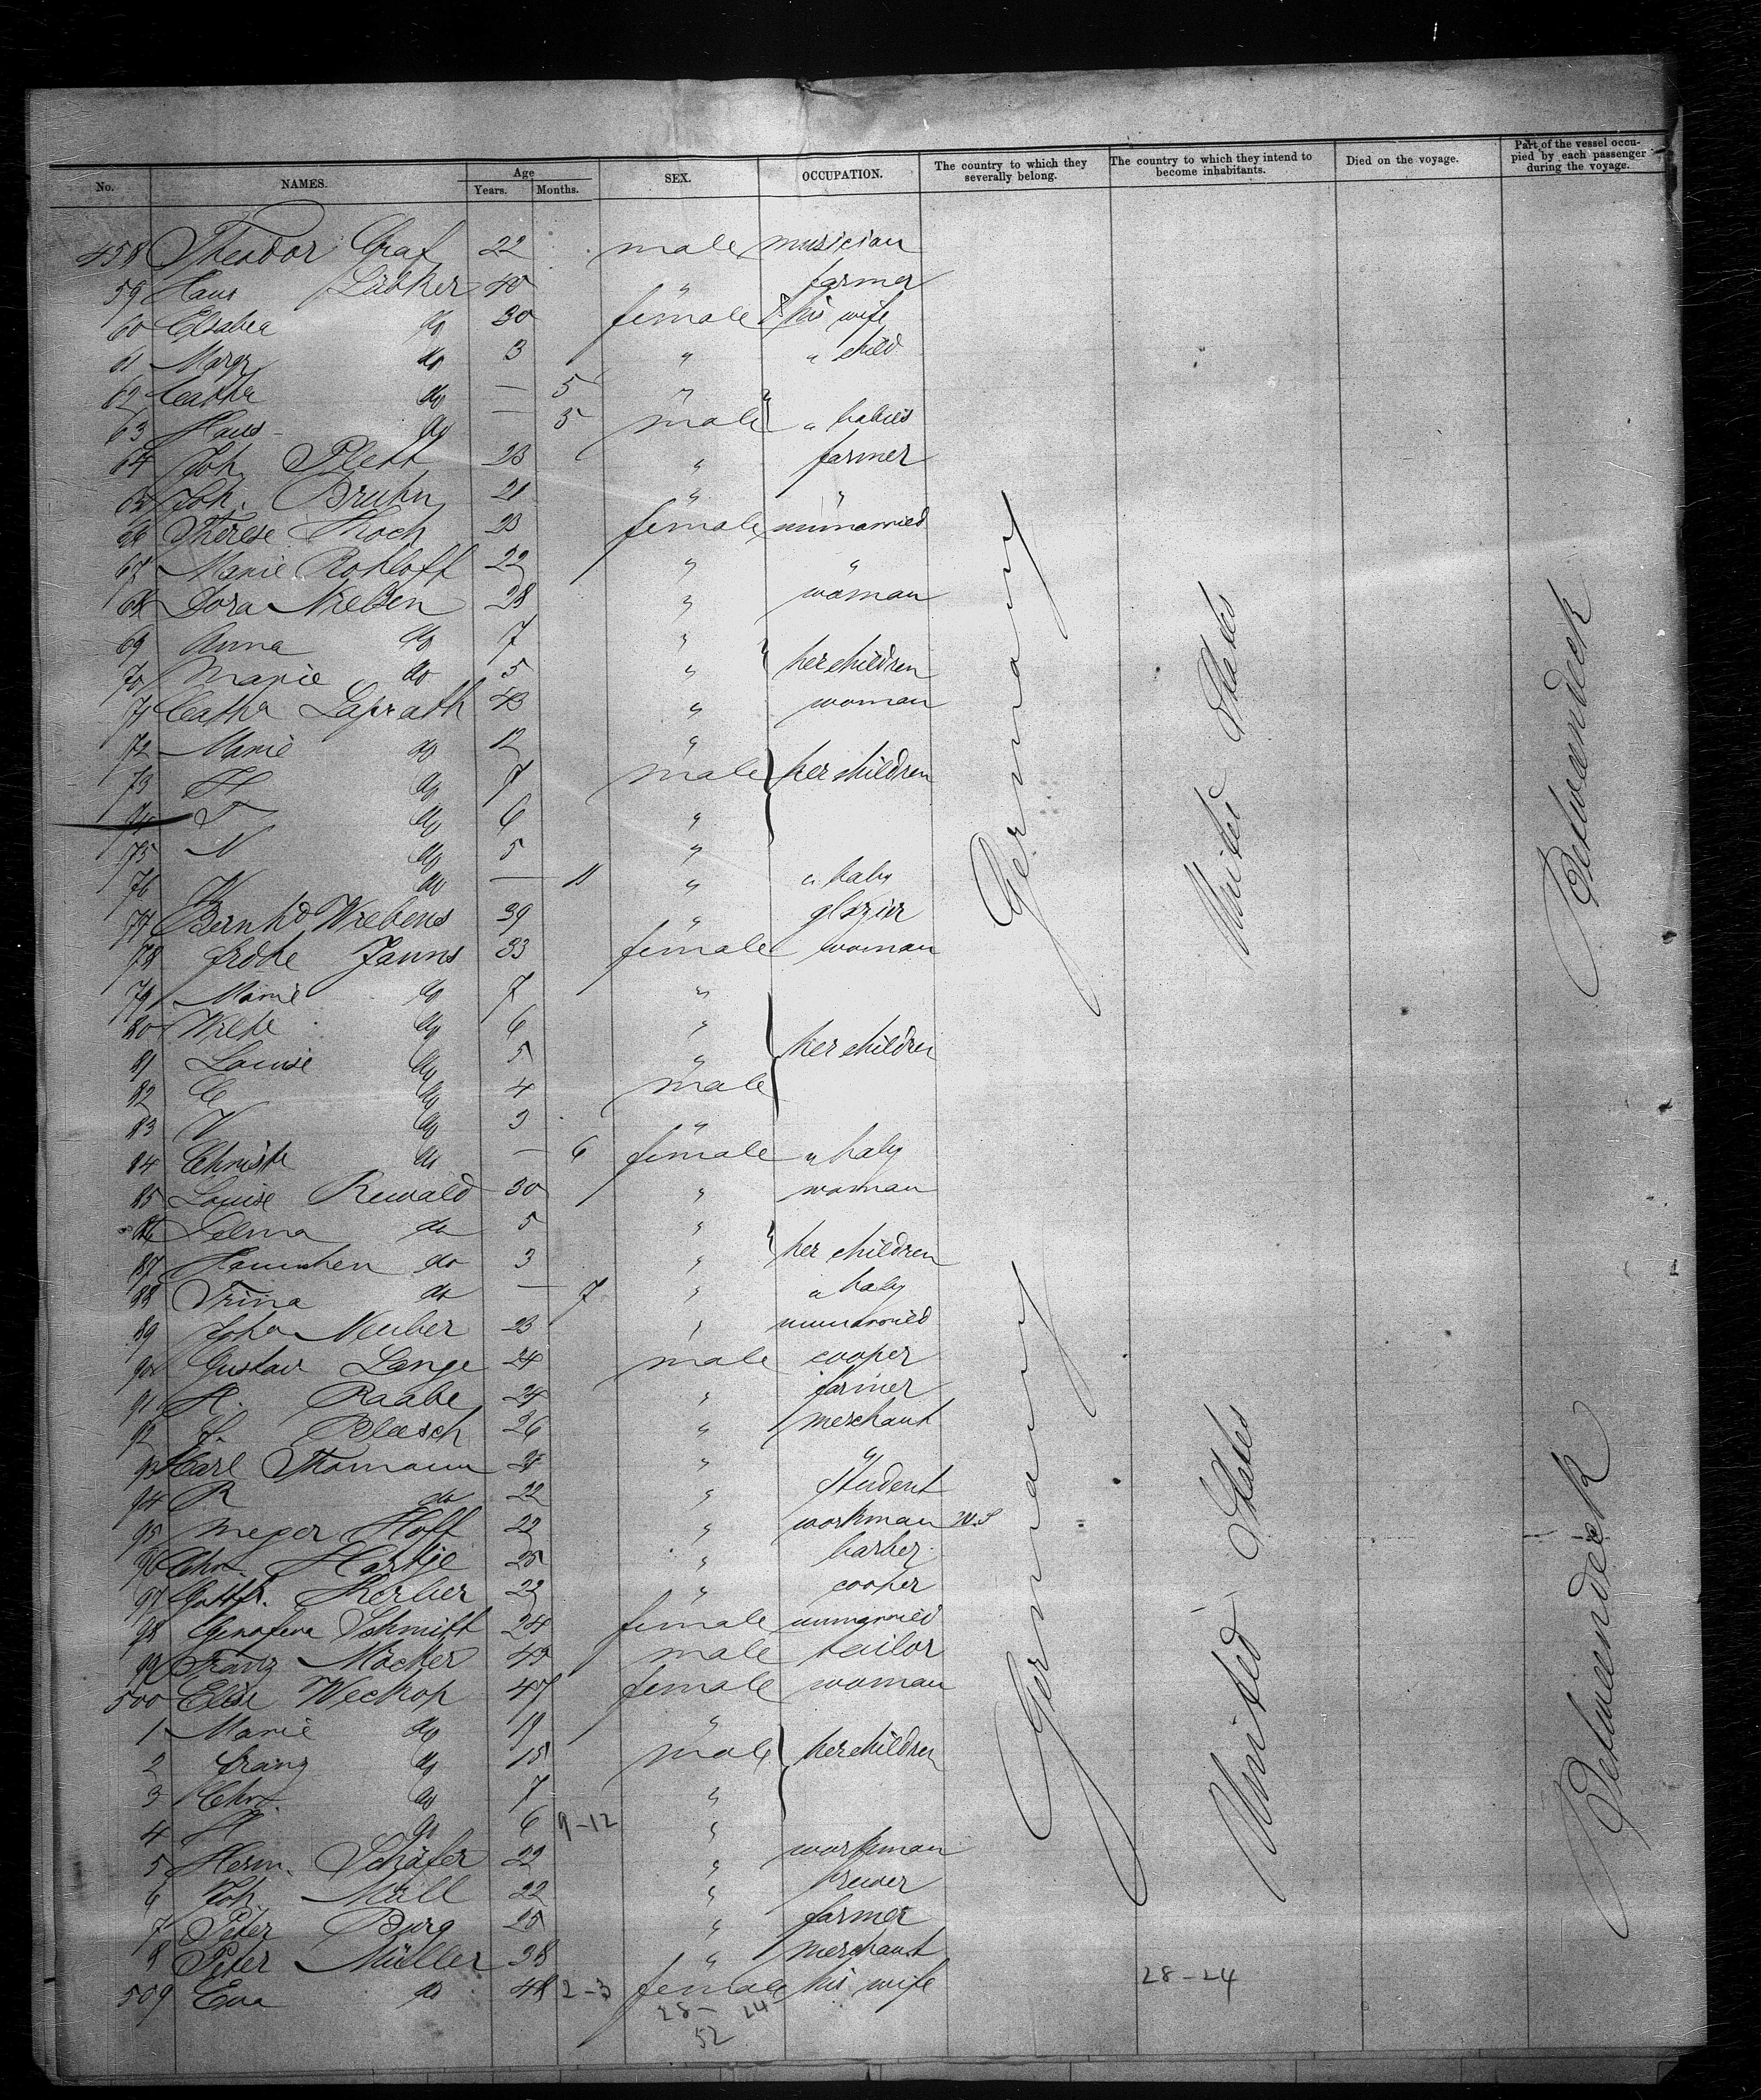 No. NAMES. Age Years. Months. SEX. OCCUPATION. The country to which they severally belong. The country to which they intend to become inhabitants. Died on the voyage. Part of the vessel occupied by each passenger during the voyage.
458 Theodor Graf 22 male musician
59 Hans Lübker 40 " farmer
60 Elsabea do 30 female his wife
61 Margr. do 3 " " child
62 Catha do — 5 "
63 Hans do — 5 male " babies
64 Joh. Plett 23 " farmer
65 Joh. Bruhn 21 " "
66 Therese Koch 23 female unmarried
67 Marie Rohloff 22 " "
68 Dora Nielsen 28 " woman
69 Anna do 7 "
70 Marie do 5 " her children
71 Catha Laprath 43 " woman
72 Marie do 12 "
73 H do 7 male her children
74 F do 6 "
75 N do 5 "
76 W do — 11 " " baby
77 Bernhd Wiebens 39 " glazier
78 Frdke Janns 33 female woman
79 Marie do 7 "
80 Wilhe do 6 "
81 Louise do 5 " her children
82 C do 4 male
83 V do 3 "
84 Christe do — 6 female " baby
85 Louise Rewald 30 " woman
86 Selma do 5 "
87 Hannchen do 3 " her children
88 Trina do — 7 " " baby
89 Joha Neuber 23 " unmarried
90 Gustav Lange 24 male cooper
91 H. Raabe 24 " farmer
92 S. Blasch 26 " merchant
93 Karl Thomann 24 " "
94 R do 22 " student
95 Meger Hoff 22 " workman U.S
96 Chr. Hartje 25 " barber
97 Gottfr. Kerber 22 " cooper
98 Genofeva Schmitt 24 female unmarried
99 Franz Mächer 43 male tailor
500 Elise Weckop 47 female woman
1 Marie do 19 "
2 Franz do 15 male her children
3 Chr. do 7 "
4 H do 6 9-12 "
5 Herm. Schäfer 22 " workman
6 Joh. Mall 22 " brewer
7 Peter Burg 25 " farmer
8 Peter Müller 38 " merchant
509 Eva do 48 2-3 female his wife
28-24
28- 24
52
Germany
United States
Betweendeck
Germany
United States
Betweendeck